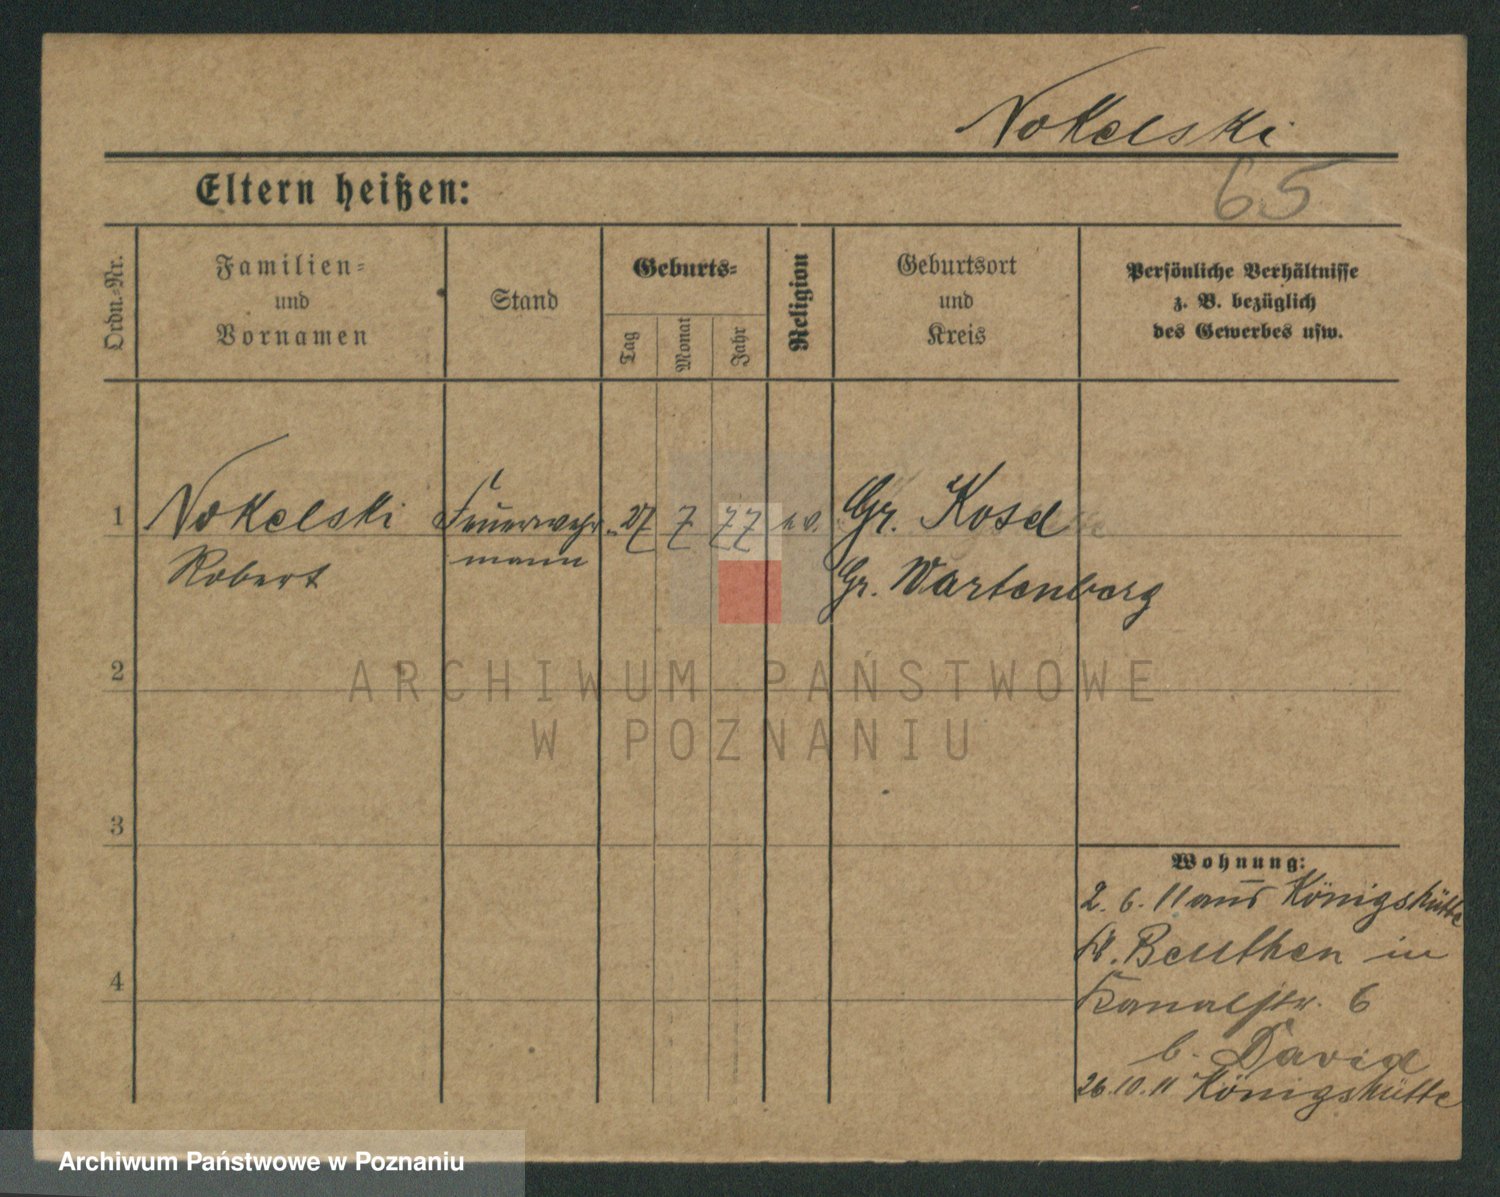 Nokelski
Eltern heißen:
65
Ordn.-Nr.
Familien-
und
Vornamen
Stand
Geburts-
Tag
Monat
Jahr
Religion
Geburtsort
und
Kreis
Persönliche Verhältnisse
z. B. bezüglich
des Gewerbes usw.
1 Nokelski Feuerwehr- 27 7 77 ev. Gr. Kosel
Robert mann Gr. Wartenberg
2
ARCHIWUM PAŃSTWOWE
W POZNANIU
3
Wohnung:
2. 6. 11 aus Königshütte
Kr. Beuthen in
4
Kanalstr. 6
b. David
26.10.11 Königshütte
Archiwum Państwowe w Poznaniu